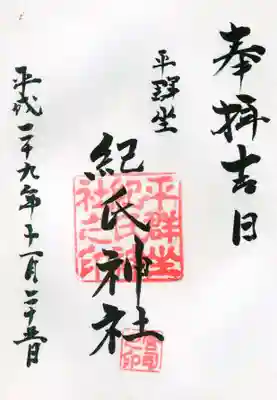 奉拝吉日
平群坐
紀氏神社
平群坐
紀氏神
社之印
宮司之印
平成二十九年十一月二十五日